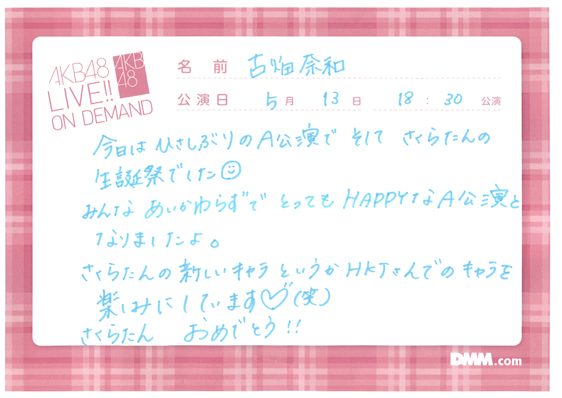 AKB48
LIVE!!
ON DEMAND
AKB
48
名 前 古畑奈和
公演日 5月 13日 18:30 公演
今日はひさしぶりのA公演で そして さくらたんの
生誕祭でした☺
みんな あいかわらずで とっても HAPPYなA公演と
なりましたよ。
さくらたんの新しいキャラ というか HKTさんでのキャラを
楽しみにしています♡(笑)
さくらたん おめでとう!!
DMM.com